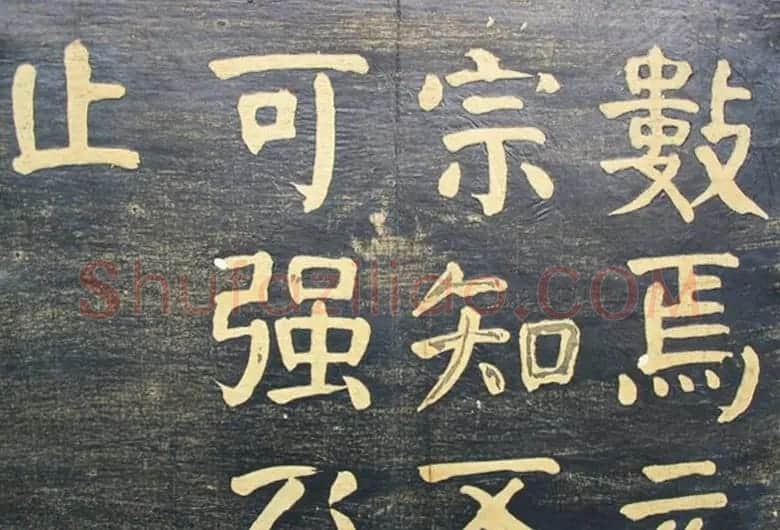 數焉
宗知
可强
止
Shufaziliao.COM